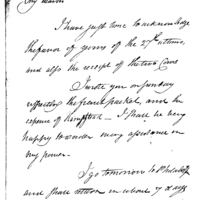 My dear Sir
I have just time to acknowledge
the favor of yours of the 27th ultimo,
and also the receipt of the two Cows
I wrote you on Sunday
respecting the franc packet, and the
expense of Hempstead — I shall be very
happy to render many assistance in
my power.
I go tomorrow to Philada
and shall return in about 7 days